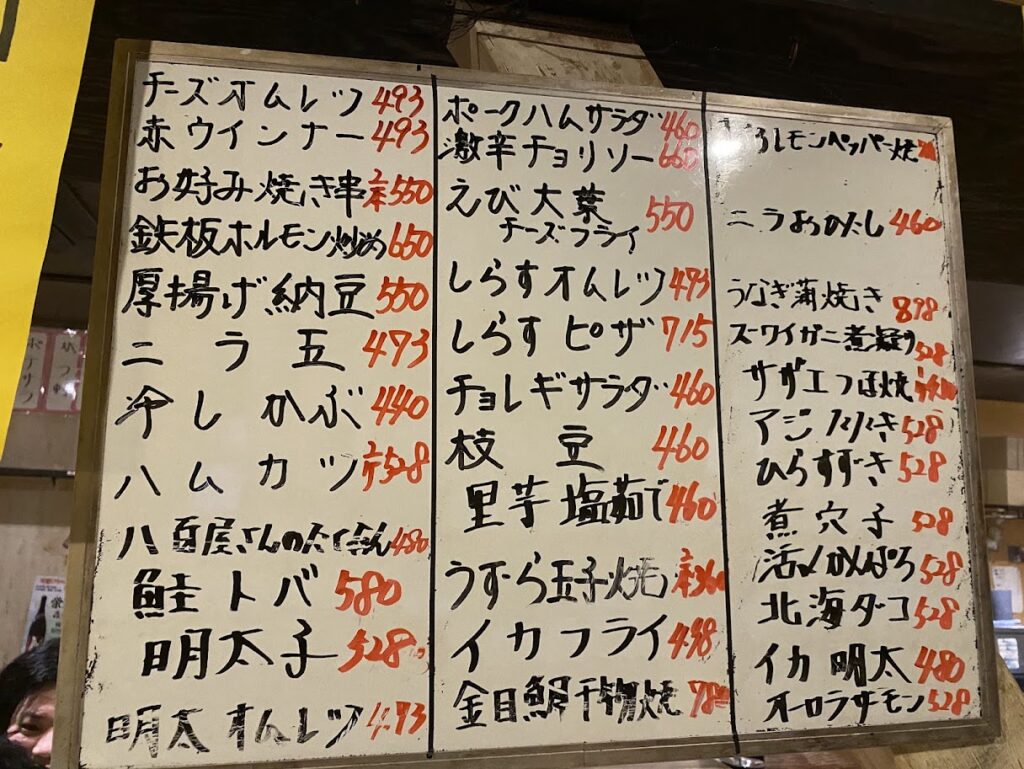 チーズオムレツ 493
赤ウインナー 493
お好み焼き串 2本 550
鉄板ホルモン炒め 650
厚揚げ納豆 550
ニラ玉 473
冷しかぶ 440
ハムカツ 2ケ 528
八百屋さんのたくあん 480
鮭トバ 580
明太子 528
明太オムレツ 473
ポークハムサラダ 460
激辛チョリソー 660
えび大葉 550
チーズフライ
しらすオムレツ 493
しらすピザ 715
チョレギサラダ 460
枝豆 460
里芋塩茹で 460
うずら玉子焼 2本 360
イカフライ 498
金目鯛干物焼
レモンペッパー焼
ニラおひたし 460
うなぎ蒲焼き 898
ズーワイガニ煮凝り 528
サザエつぼ焼
アジ 528
ひらすずき 528
煮穴子 528
活〆かんぱち 528
北海ダコ 528
イカ明太 480
オーロラサーモン 528